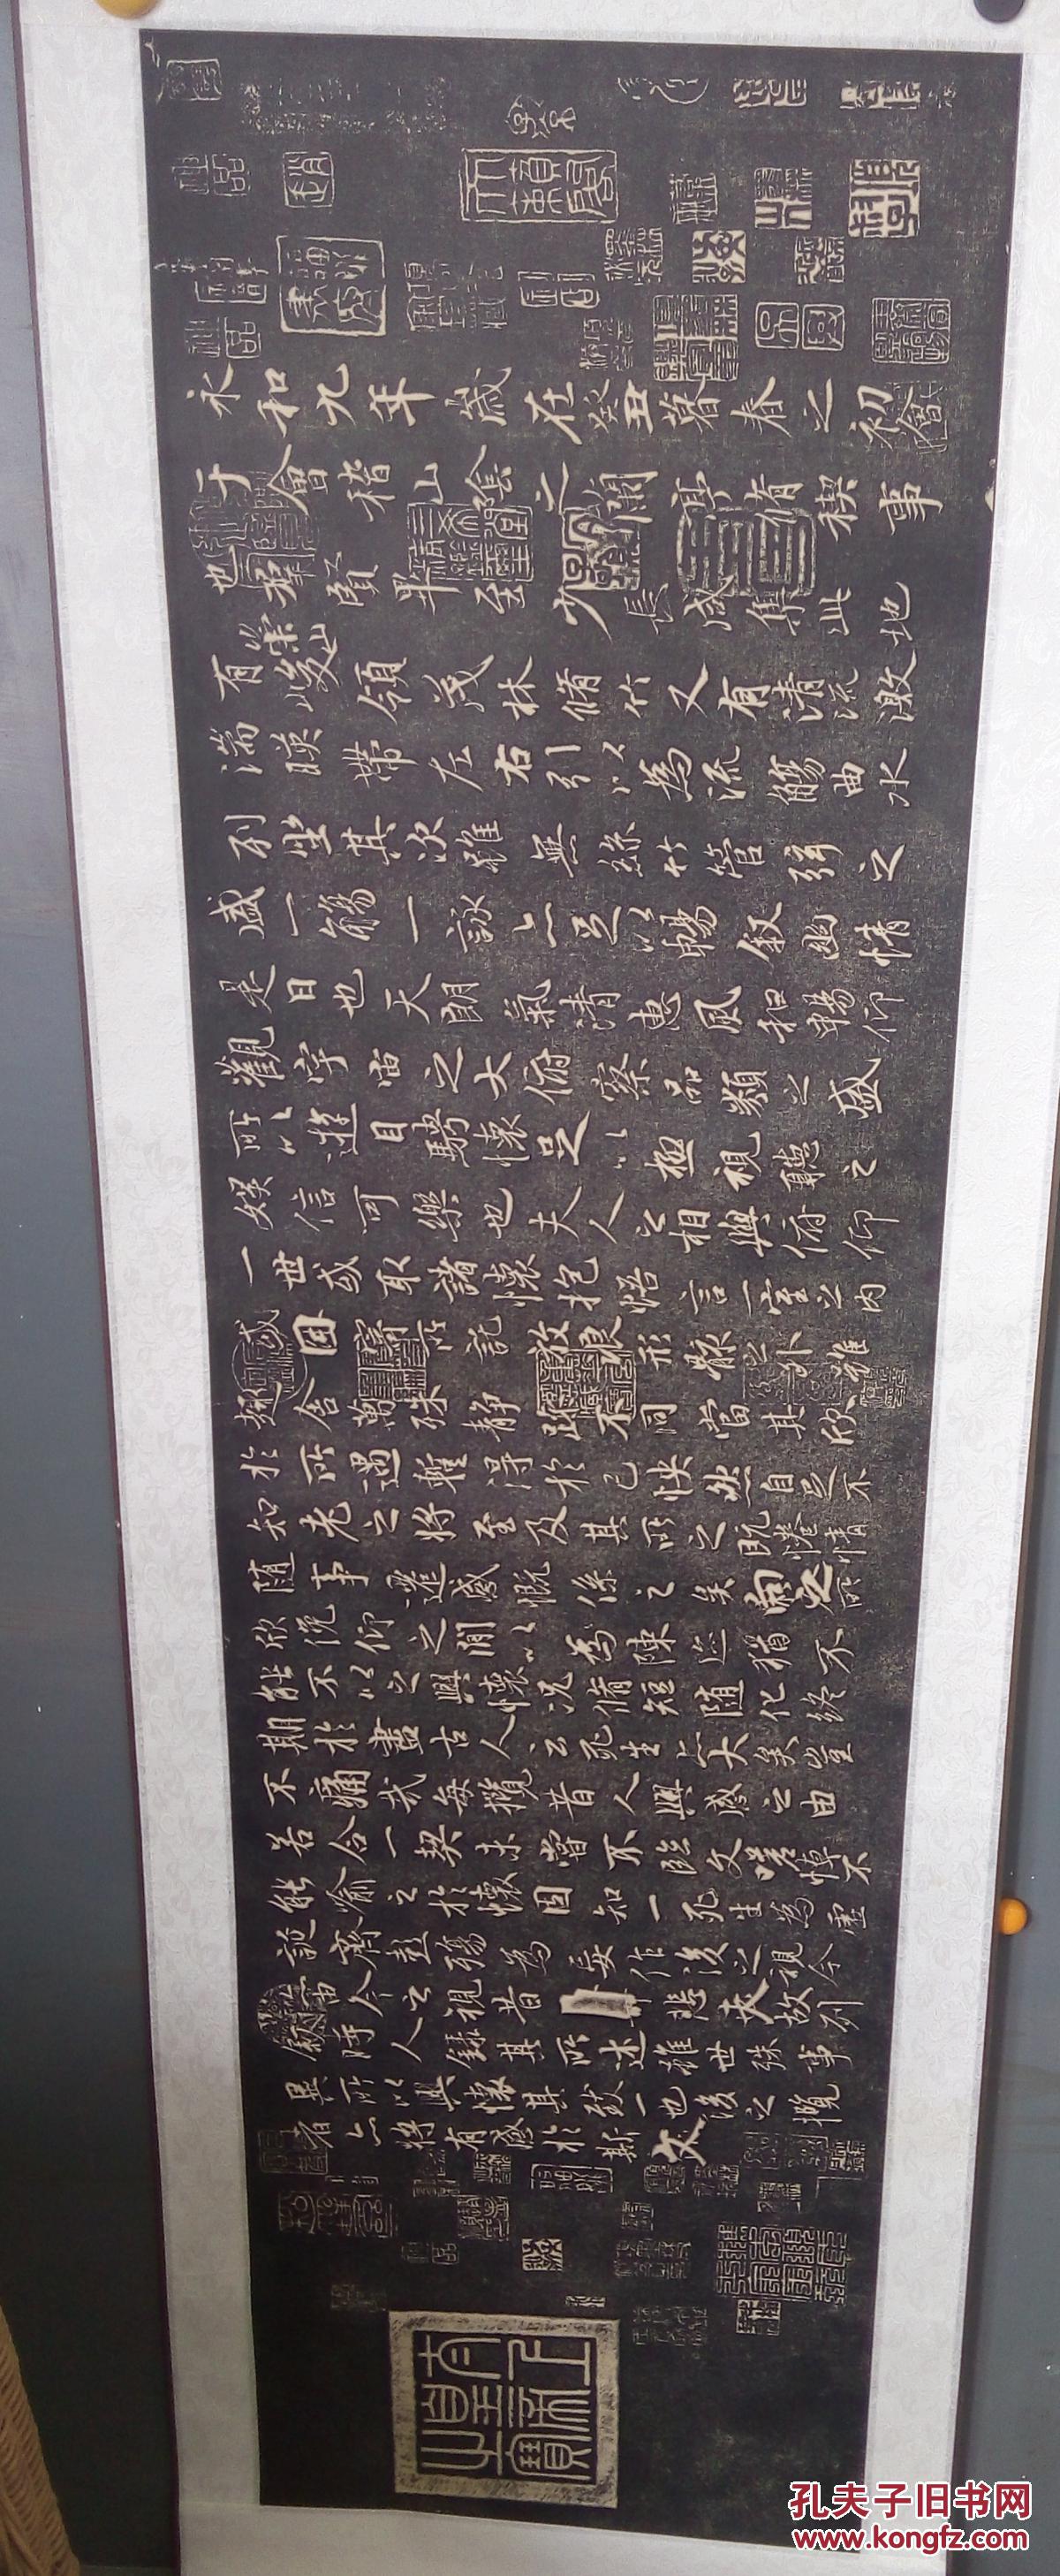 永和九年歲在癸丑暮春之初會
于會稽山陰之蘭亭脩稧事
也羣賢畢至少長咸集此地
有崇山峻領茂林脩竹又有清流激
湍暎帶左右引以為流觴曲水
列坐其次雖無絲竹管弦之
盛一觴一詠亦足以暢敘幽情
是日也天朗氣清惠風和暢仰
觀宇宙之大俯察品類之盛
所以遊目騁懷足以極視聽之
娛信可樂也夫人之相與俯仰
一世或取諸懷抱悟言一室之內
或因寄所託放浪形骸之外雖
趣舍萬殊靜躁不同當其欣
於所遇暫得於己怏然自足不
知老之將至及其所之既惓情
隨事遷感慨係之矣向之所
欣俛仰之間以為陳迹猶不
能不以之興懷況脩短隨化終
期於盡古人云死生亦大矣豈
不痛哉每攬昔人興感之由
若合一契未嘗不臨文嗟悼不
能喻之於懷固知一死生為虛
誕齊彭殤為妄作後之視今
亦由今之視昔悲夫故列
敘時人錄其所述雖世殊事
異所以興懷其致一也後之攬
者亦將有感於斯文
孔夫子旧书网
www.kongfz.com